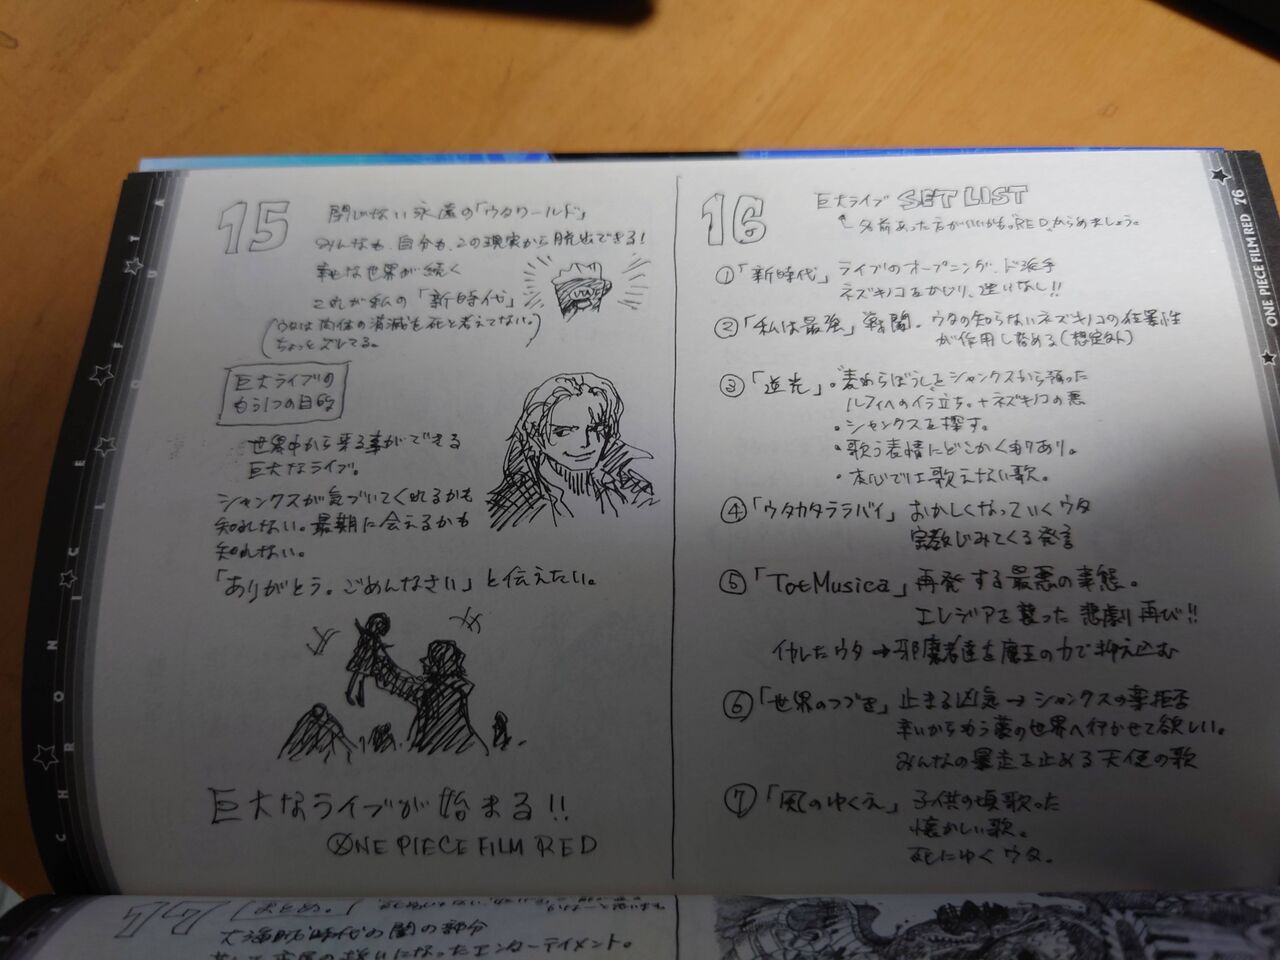 15
閉じない永遠の「ウタワールド」
みんなも、自分も、この現実から脱出できる!
幸せな世界が続く
これが私の「新時代」
(ウタは肉体の消滅を死と考えてない。
ちょっとズレてる。)
巨大ライブの
もう1つの目的
世界中から来る事ができる
巨大なライブ。
シャンクスが気づいてくれるかも
知れない。最期に会えるかも
知れない。
「ありがとう。ごめんなさい」と伝えたい。
巨大なライブが始まる!!
ONE PIECE FILM RED
16
巨大ライブ SET LIST
名前あった方がいいかも。REDからめましょう。
①「新時代」ライブのオープニング、ド派手
ネズキノコをかじり、迷いなし!!
②「私は最強」戦闘。ウタの知らないネズキノコの狂暴性
が作用し始める(想定外)
③「逆光」。麦わらぼうしをシャンクスから預った
ルフィへのイラ立ち。+ネズキノコの悪
・シャンクスを探す。
・歌う表情にどこかくもりあり。
・本心では歌えない歌。
④「ウタカタララバイ」おかしくなっていくウタ
宗教じみてくる発言
⑤「Tot Musica」再発する最悪の事態。
エレジアを襲った悲劇再び!!
イカレたウタ→邪魔者達を魔王の力で抑え込む
⑥「世界のつづき」止まる凶気→シャンクスの薬拒否
辛いからもう夢の世界へ行かせて欲しい。
みんなの暴走を止める天使の歌
⑦「風のゆくえ」子供の頃歌った
懐かしい歌。
死にゆくウタ。
CHRONICLE OF UTA
ONE PIECE FILM RED 76
17
まとめ。
大海賊時代の闇の部分
エンターテイメント。